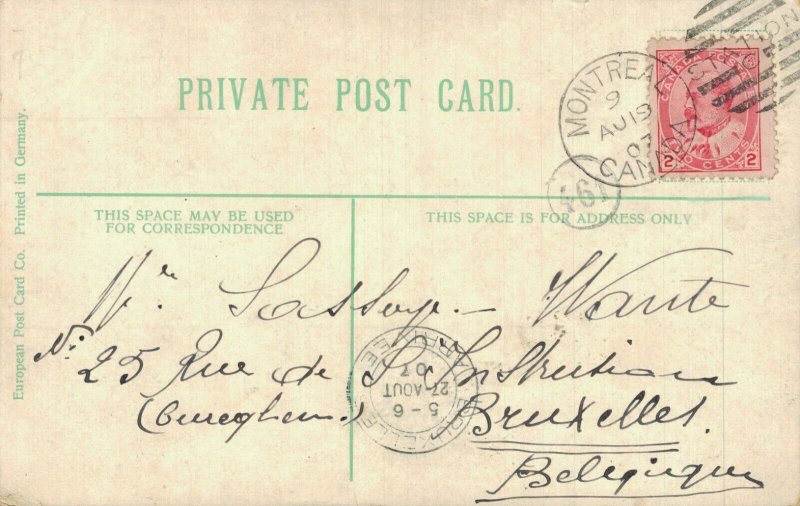 PRIVATE POST CARD.
European Post Card Co. Printed in Germany.
THIS SPACE MAY BE USED
FOR CORRESPONDENCE
THIS SPACE IS FOR ADDRESS ONLY
CANADA POSTAGE
2 TWO CENTS 2
MONTREAL
9
AU 19
07
CANADA
STATION
461
BRUXELLES ARRIVEE
5-6
27 AOUT
07
Mr Lassaye - Wante
No 25 Rue de L'Instruction
(Cureghem.) Bruxelles.
Belgique